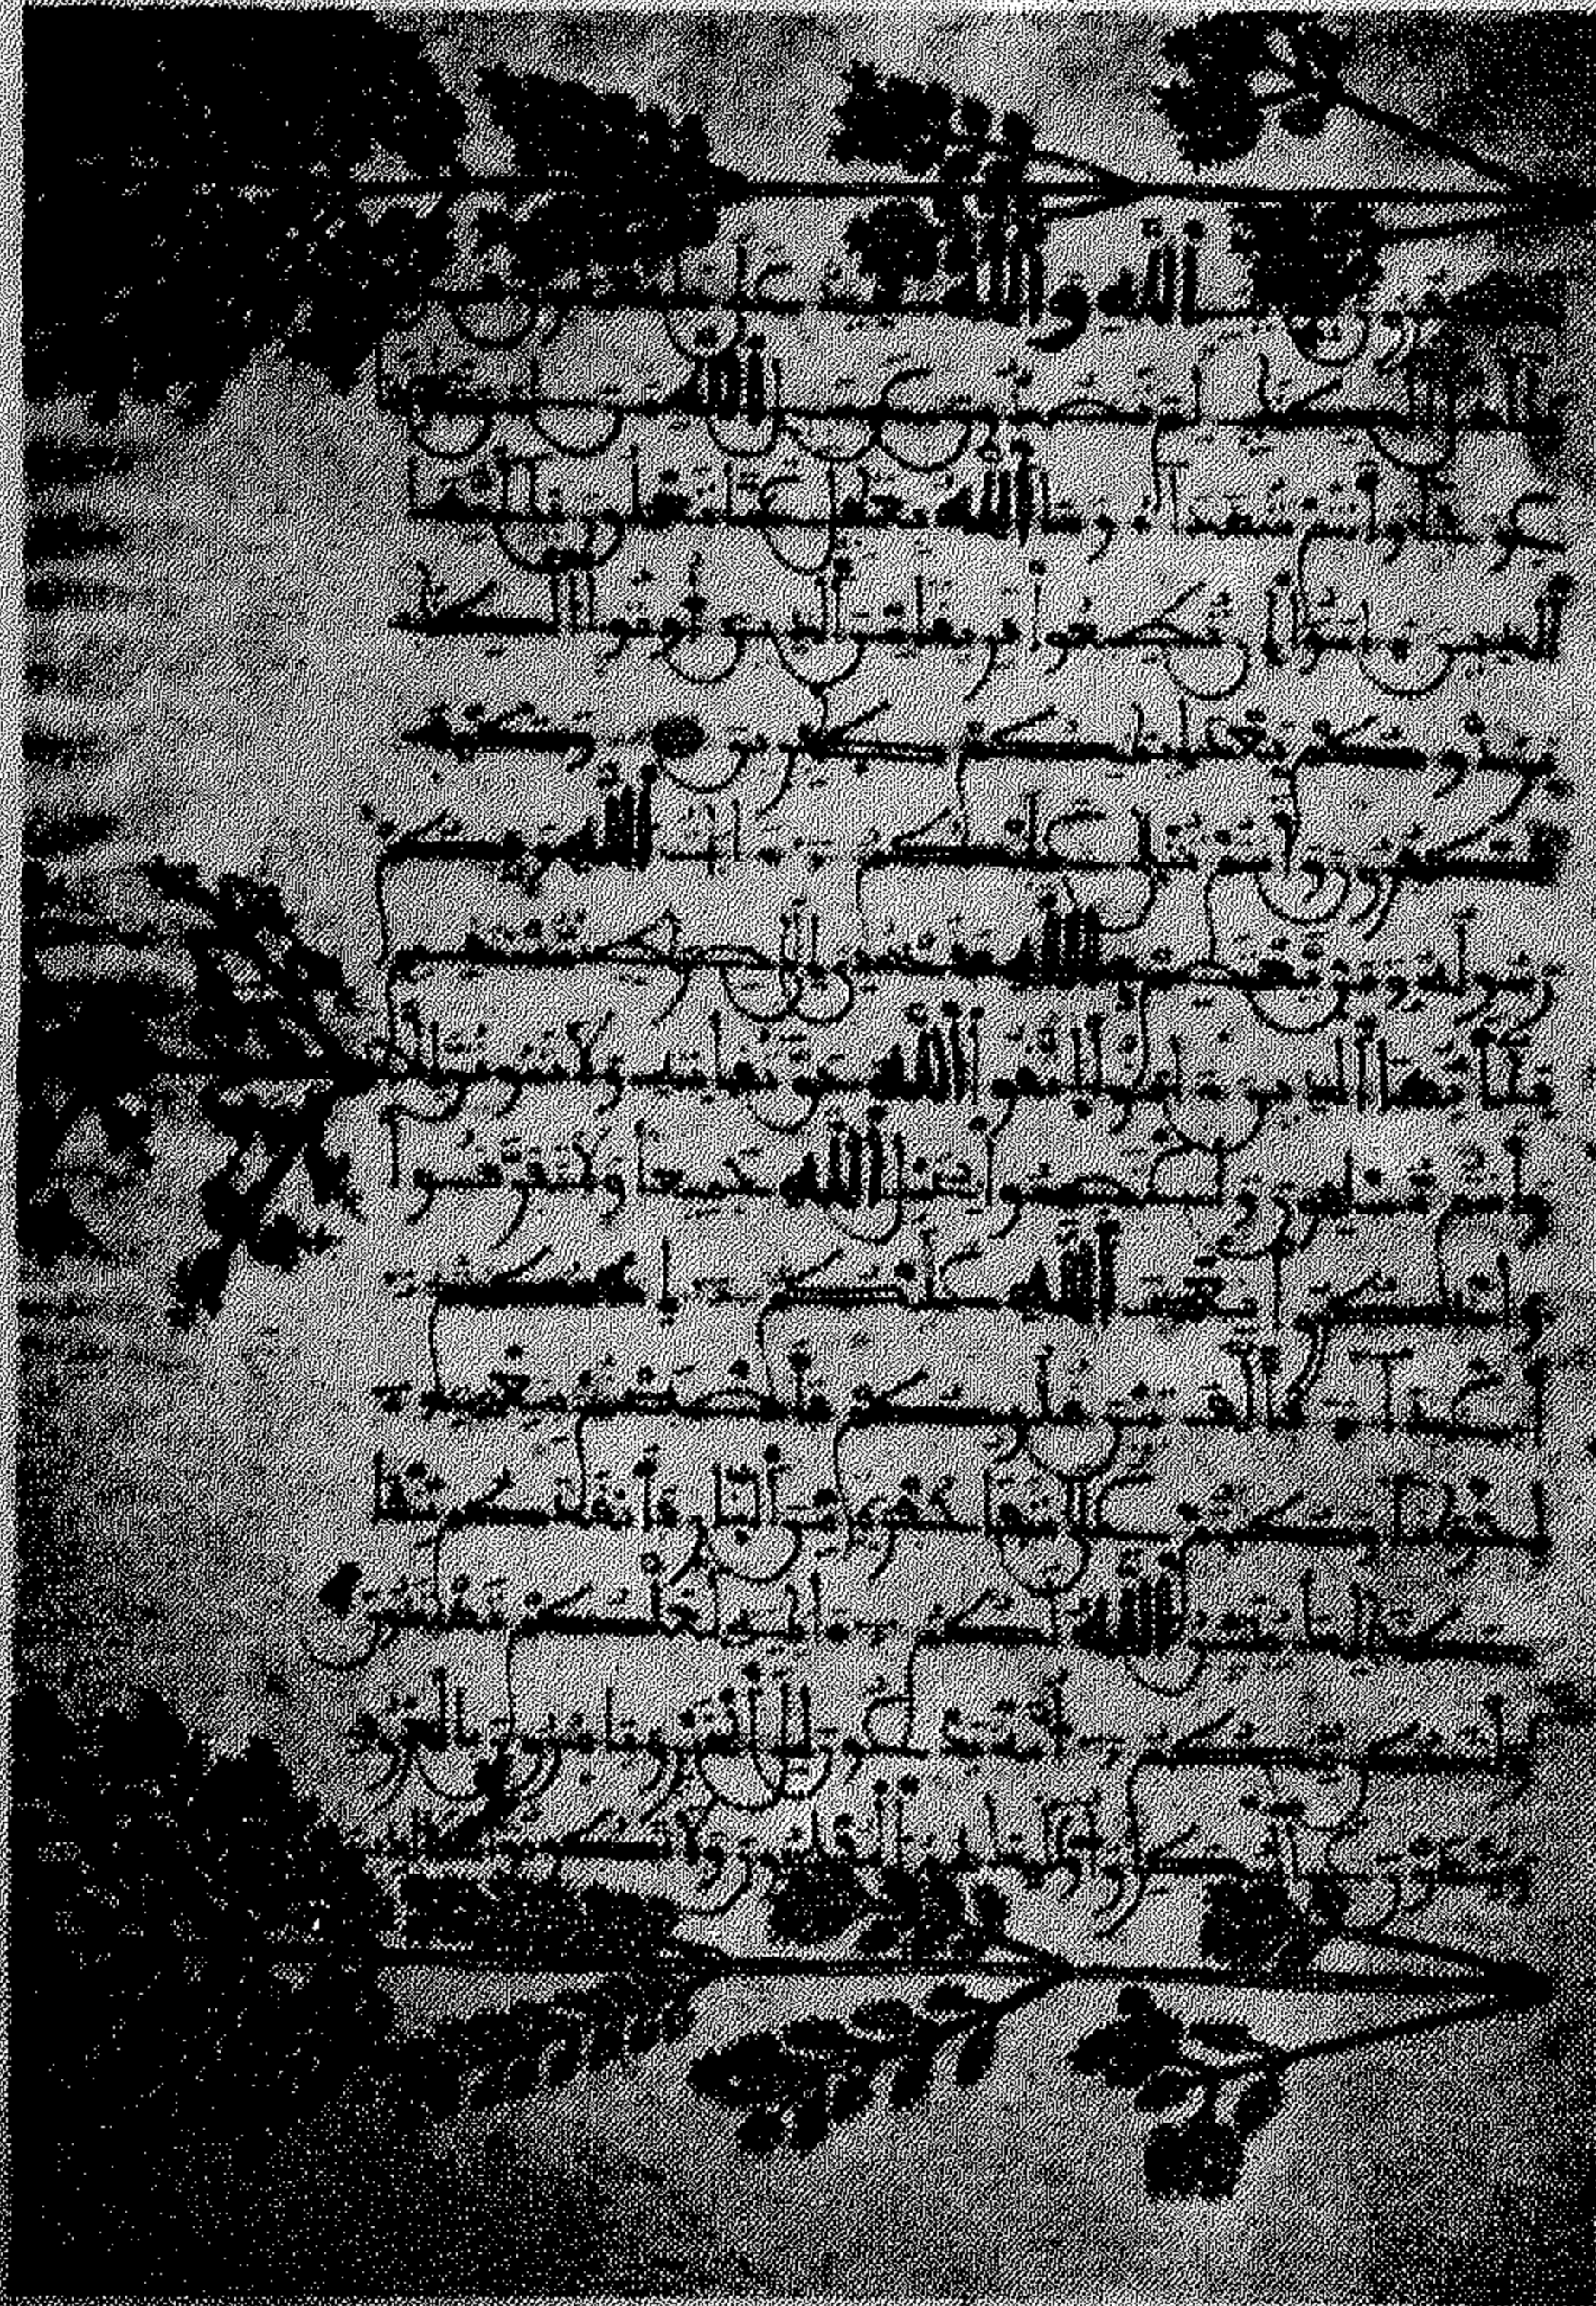 الله والله شهيد على ما تعملون قل
يأهل الكتب لم تصدون عن سبيل الله من ءامن تبغونها
عوجا وأنتم شهداء وما الله بغفل عما تعملون يأيها
الذين ءامنوا إن تطيعوا فريقا من الذين أوتوا الكتب
يردوكم بعد إيمنكم كفرين وكيف
تكفرون وأنتم تتلى عليكم ءايت الله وفيكم
رسوله ومن يعتصم بالله فقد هدي إلى صرط مستقيم
يأيها الذين ءامنوا اتقوا الله حق تقاته ولا تموتن إلا
وأنتم مسلمون واعتصموا بحبل الله جميعا ولا تفرقوا
واذكروا نعمت الله عليكم إذ كنتم
أعداء فألف بين قلوبكم فأصبحتم بنعمته
إخونا وكنتم على شفا حفرة من النار فأنقذكم منها
كذلك يبين الله لكم ءايته لعلكم تهتدون
ولتكن منكم أمة يدعون إلى الخير ويأمرون بالمعروف
وينهون عن المنكر وأولئك هم المفلحون ولا تكونوا